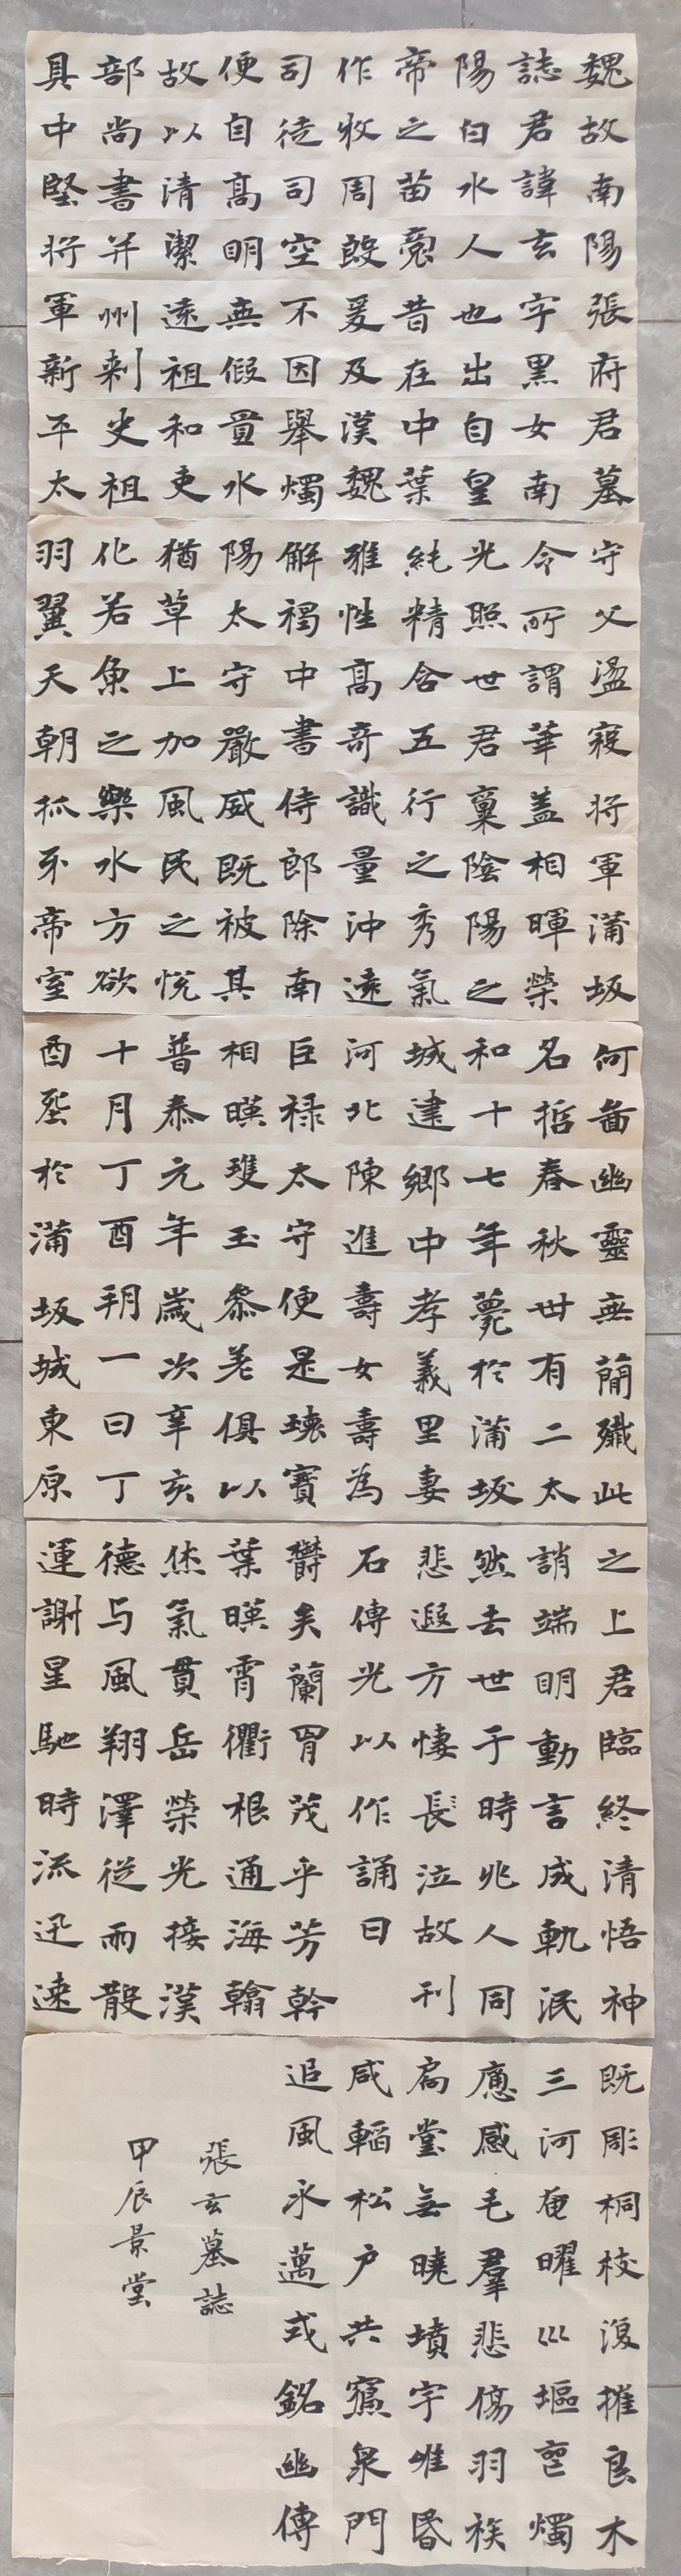 魏故南陽張府君墓
誌君諱玄字黑女南
陽白水人也出自皇
帝之苗裔昔在中葉
作牧周殷爰及漢魏
司徒司空不因舉燭
便自高明無假置水
故以清潔遠祖和吏
部尚書并州刺史祖
具中堅將軍新平太
守父盪寇將軍蒲坂
令所謂華蓋相暉榮
光照世君稟陰陽之
純精含五行之秀氣
雅性高奇識量沖遠
解褐中書侍郎除南
陽太守嚴威既被其
猶草上加風民之悅
化若魚之樂水方欲
羽翼天朝抓牙帝室
何啚幽靈無簡殲此
名哲春秋卅有二太
和十七年薨於蒲坂
城建鄉中孝義里妻
河北陳進壽女壽為
巨祿太守便是瓌寶
相暎瓊玉參差俱以
普泰元年歲次辛亥
十月丁酉朔一日丁
酉塟於蒲坂城東原
之上君臨終清悟神
誚端明動言成軌泯
然去世于時兆人同
悲遐方悽長泣故刊
石傳光以作誦曰
欝矣蘭冑茂乎芳幹
葉暎霄衢根通海翰
烋氣貫岳榮光接漢
德与風翔澤從雨散
運謝星馳時流迅速
既彫桐枝復摧良木
三河奄曜巛塸寔燭
應感毛羣悲傷羽族
扃堂無曉墳宇唯昏
咸輼松户共寢泉門
追風永邁式銘幽傳
張玄墓誌
甲辰景堂